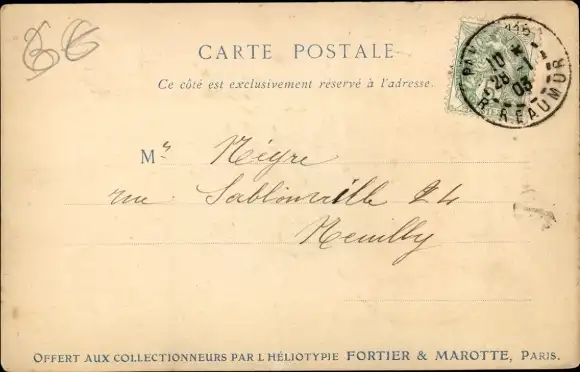 86
CARTE POSTALE
Ce côté est exclusivement réservé à l'adresse.
PA
10 *
28 -1
03
R. REAUMUR
Mr Nègre
rue Sablonville 24
Neuilly
OFFERT AUX COLLECTIONNEURS PAR L'HÉLIOTYPIE FORTIER & MAROTTE, PARIS.